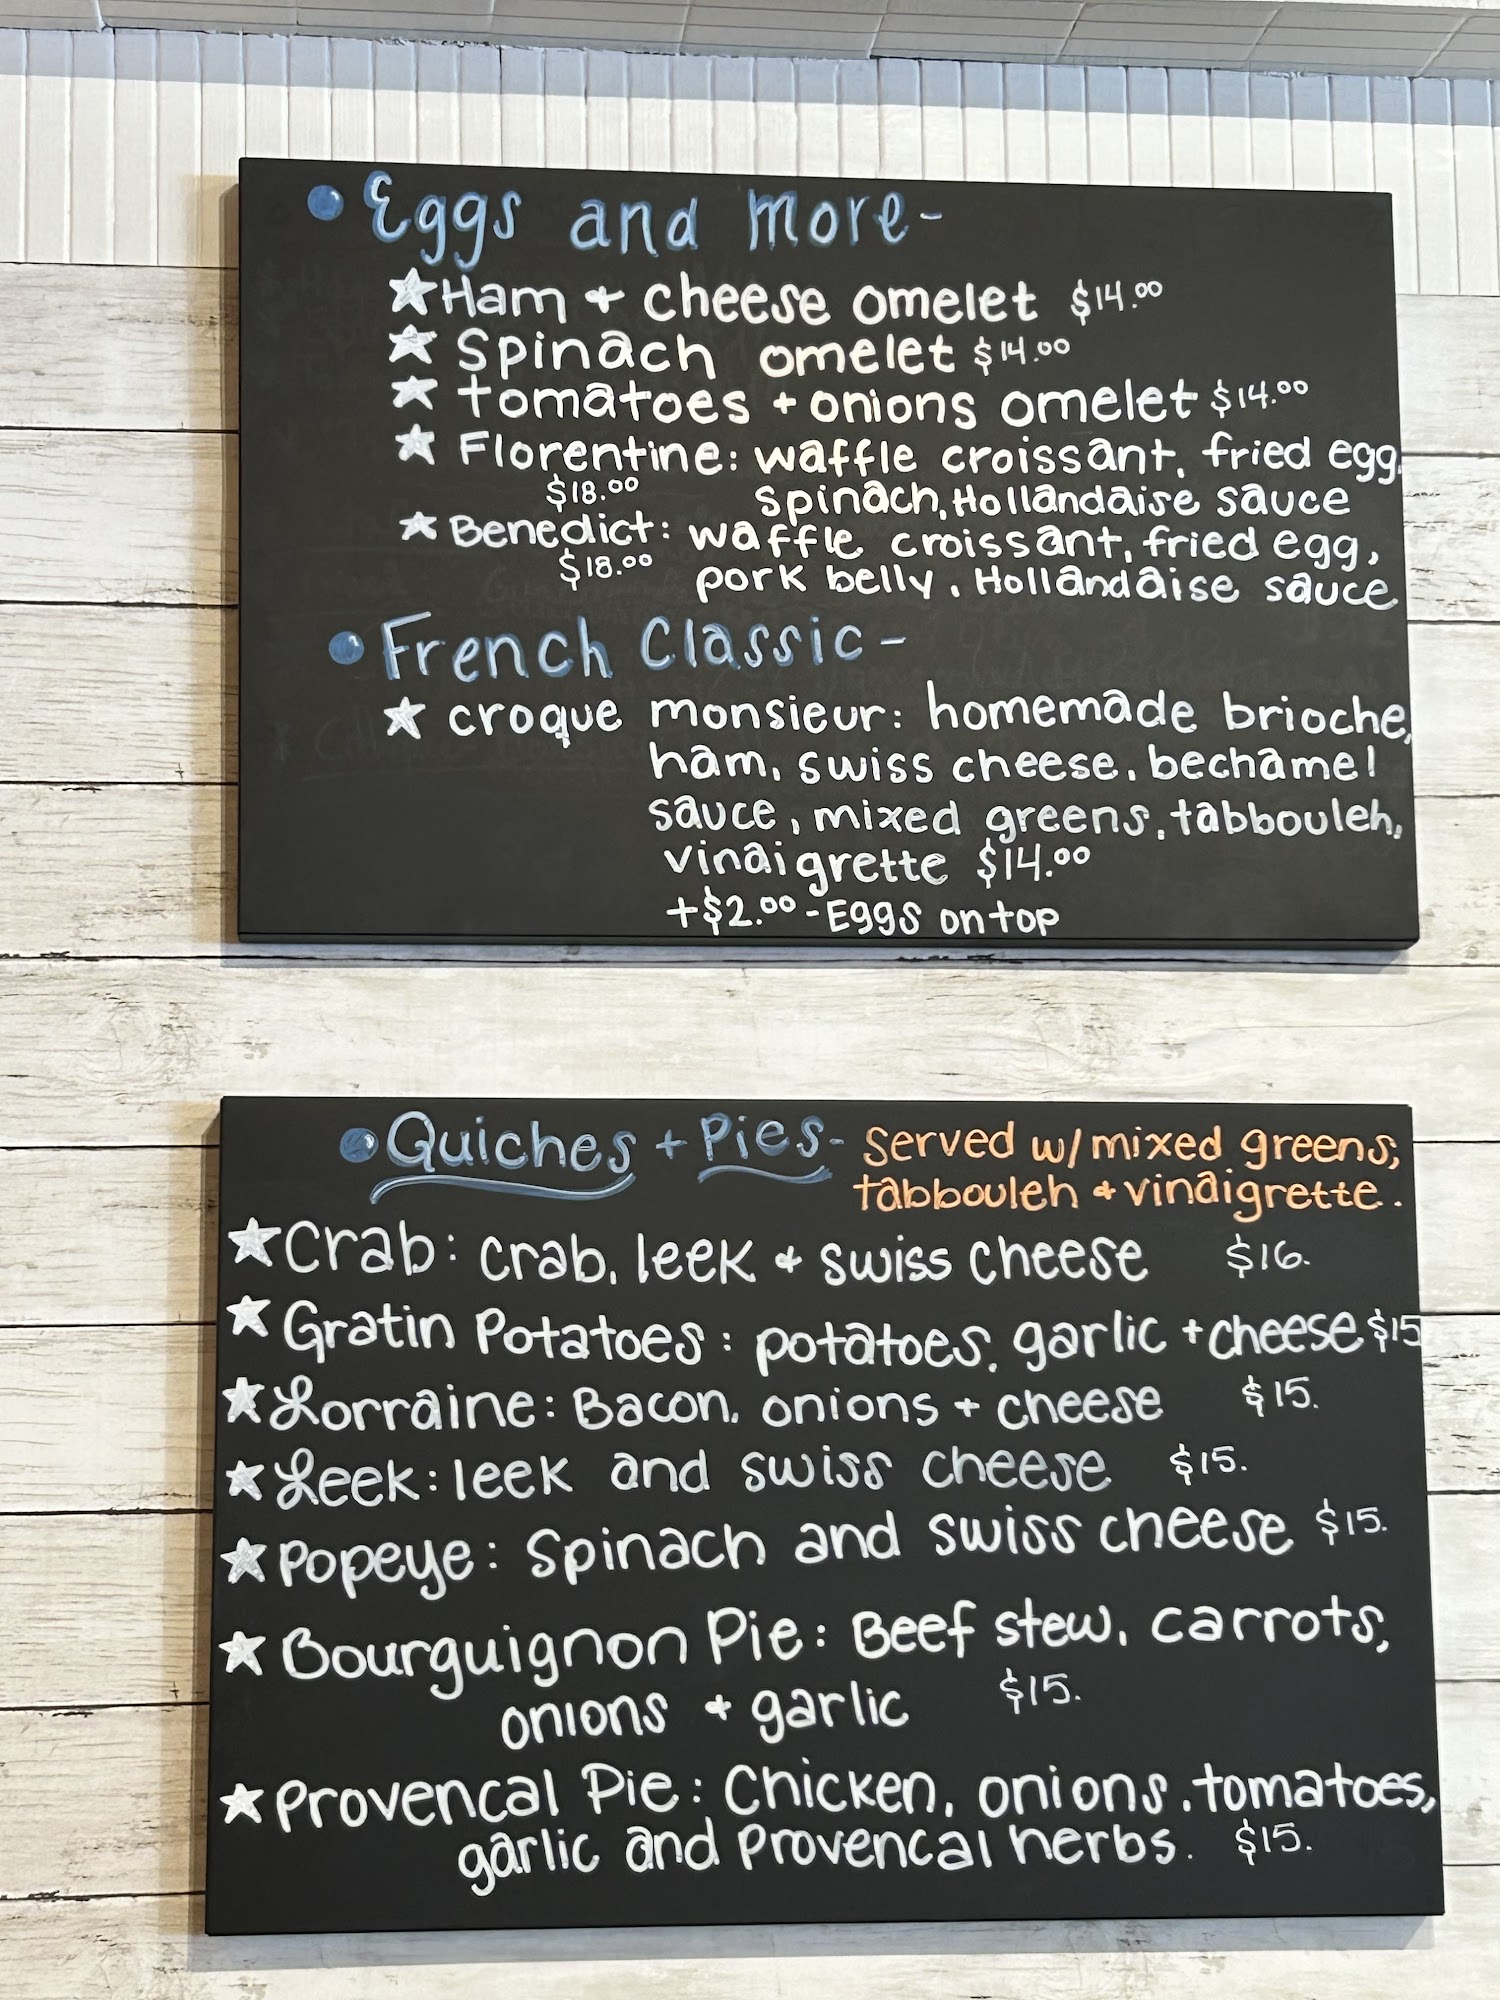 Eggs and more-
Ham + cheese omelet $14.00
Spinach omelet $14.00
tomatoes + onions omelet $14.00
Florentine: waffle croissant, fried egg,
$18.00 spinach, Hollandaise sauce
Benedict: waffle croissant, fried egg,
$18.00 pork belly, Hollandaise sauce
French Classic-
croque monsieur: homemade brioche,
ham, swiss cheese, bechamel
sauce, mixed greens, tabbouleh,
vinaigrette $14.00
+$2.00 - Eggs on top
Quiches + Pies- Served w/ mixed greens,
tabbouleh + vinaigrette.
Crab: crab, leek + swiss cheese $16.
Gratin Potatoes: potatoes, garlic + cheese $15
Lorraine: Bacon, onions + cheese $15.
Leek: leek and swiss cheese $15.
Popeye: Spinach and swiss cheese $15.
Bourguignon Pie: Beef stew, carrots,
onions + garlic $15.
Provencal Pie: Chicken, onions, tomatoes,
garlic and Provencal herbs. $15.